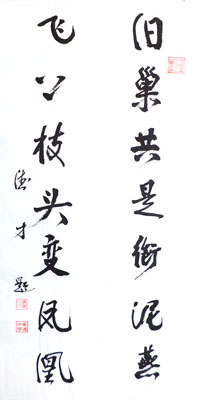 旧巢共是衔泥燕
飞上枝头变凤凰
德才题